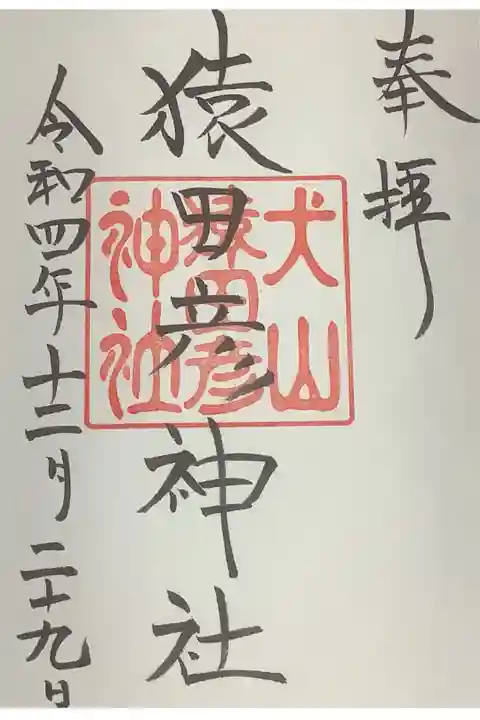 奉拝
犬山
猿田彦
神社
猿田彦神社
令和四年十二月二十九日